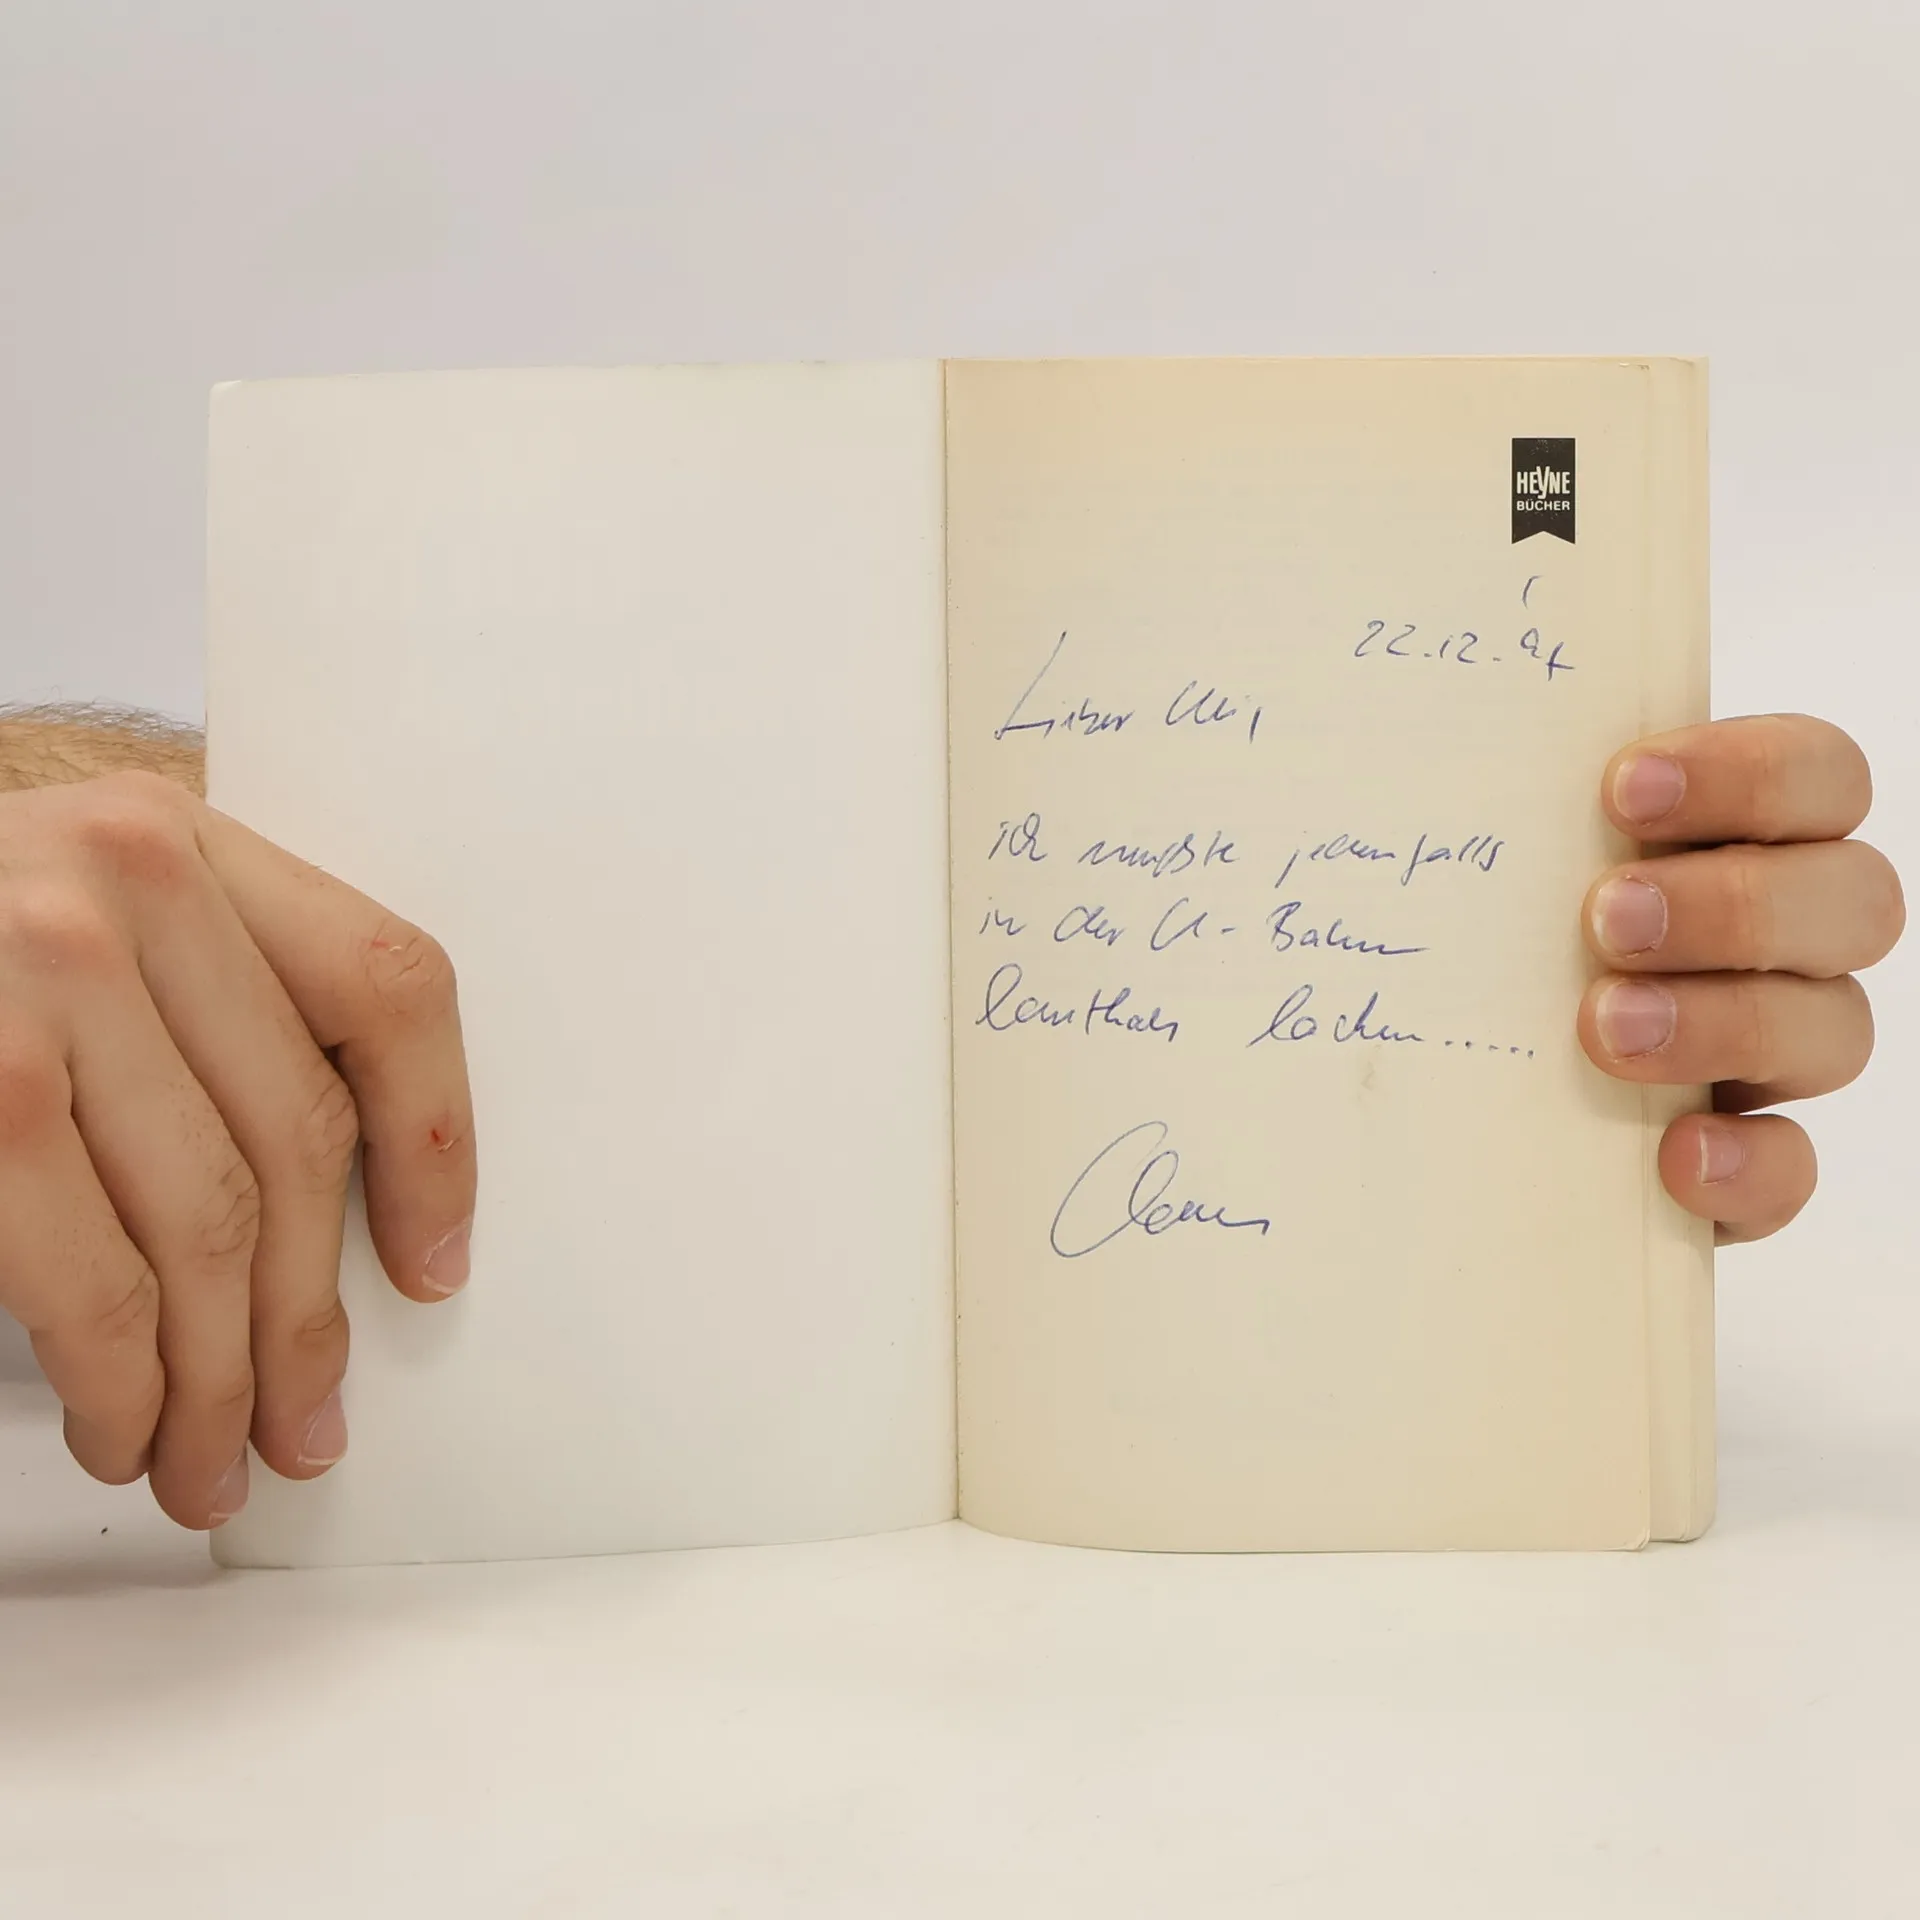 HEYNE
BÜCHER
22.12.97
Lieber Uli,
ich mußte jedenfalls
in der U-Bahn
lauthals lachen.....
Claus